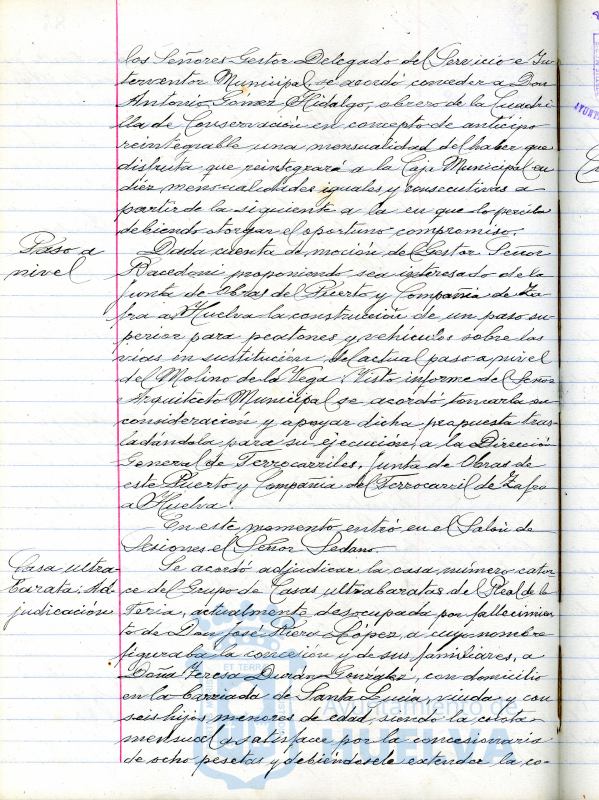 los Señores Gestor Delegado del Servicio e In
terventor Municipal, se acordó conceder a Don
Antonio Gómez Hidalgo, obrero de la Cuadri
lla de Conservación en concepto de anticipo
reintegrable una mensualidad del haber que
disfruta que reintegrará a la Caja Municipal en
diez mensualidades iguales y consecutivas a
partir de la siguiente a la en que lo perciba
debiendo otorgar el oportuno compromiso.
Paso a
nivel
Dada cuenta de moción del Gestor Señor
Racedoni proponiendo sea interesado de la
Junta de Obras del Puerto y Compañia de Za
fra a Huelva la construcción de un paso su
perior para peatones y vehículos sobre las
vías en sustitución del actual paso a nivel
del Molino de la Vega; Visto informe del Señor
Arquitecto Municipal se acordó tomarla en
consideración y apoyar dicha propuesta tras
ladándola para su ejecución a la Dirección
General de Ferrocarriles, Junta de Obras de
este Puerto y Compañia del Ferrocarril de Zafra
a Huelva.
En este momento entró en el Salón de
Sesiones el Señor Sedano.
Casa ultra-
barata: Ad
judicación
Se acordó adjudicar la casa número cator
ce del Grupo de Casas ultrabaratas del Real de la
Feria, actualmente desocupada por fallecimien
to de Don José Riera López, a cuyo nombre
figuraba la concesión y de sus familiares, a
Doña Teresa Durán González, con domicilio
en la barriada de Santa Lucía, viuda y con
seis hijos menores de edad, siendo la cuota
mensual a satisface por la concesionaria
de ocho pesetas y debiéndosele extender la co-
Ayuntamiento de
HUELVA